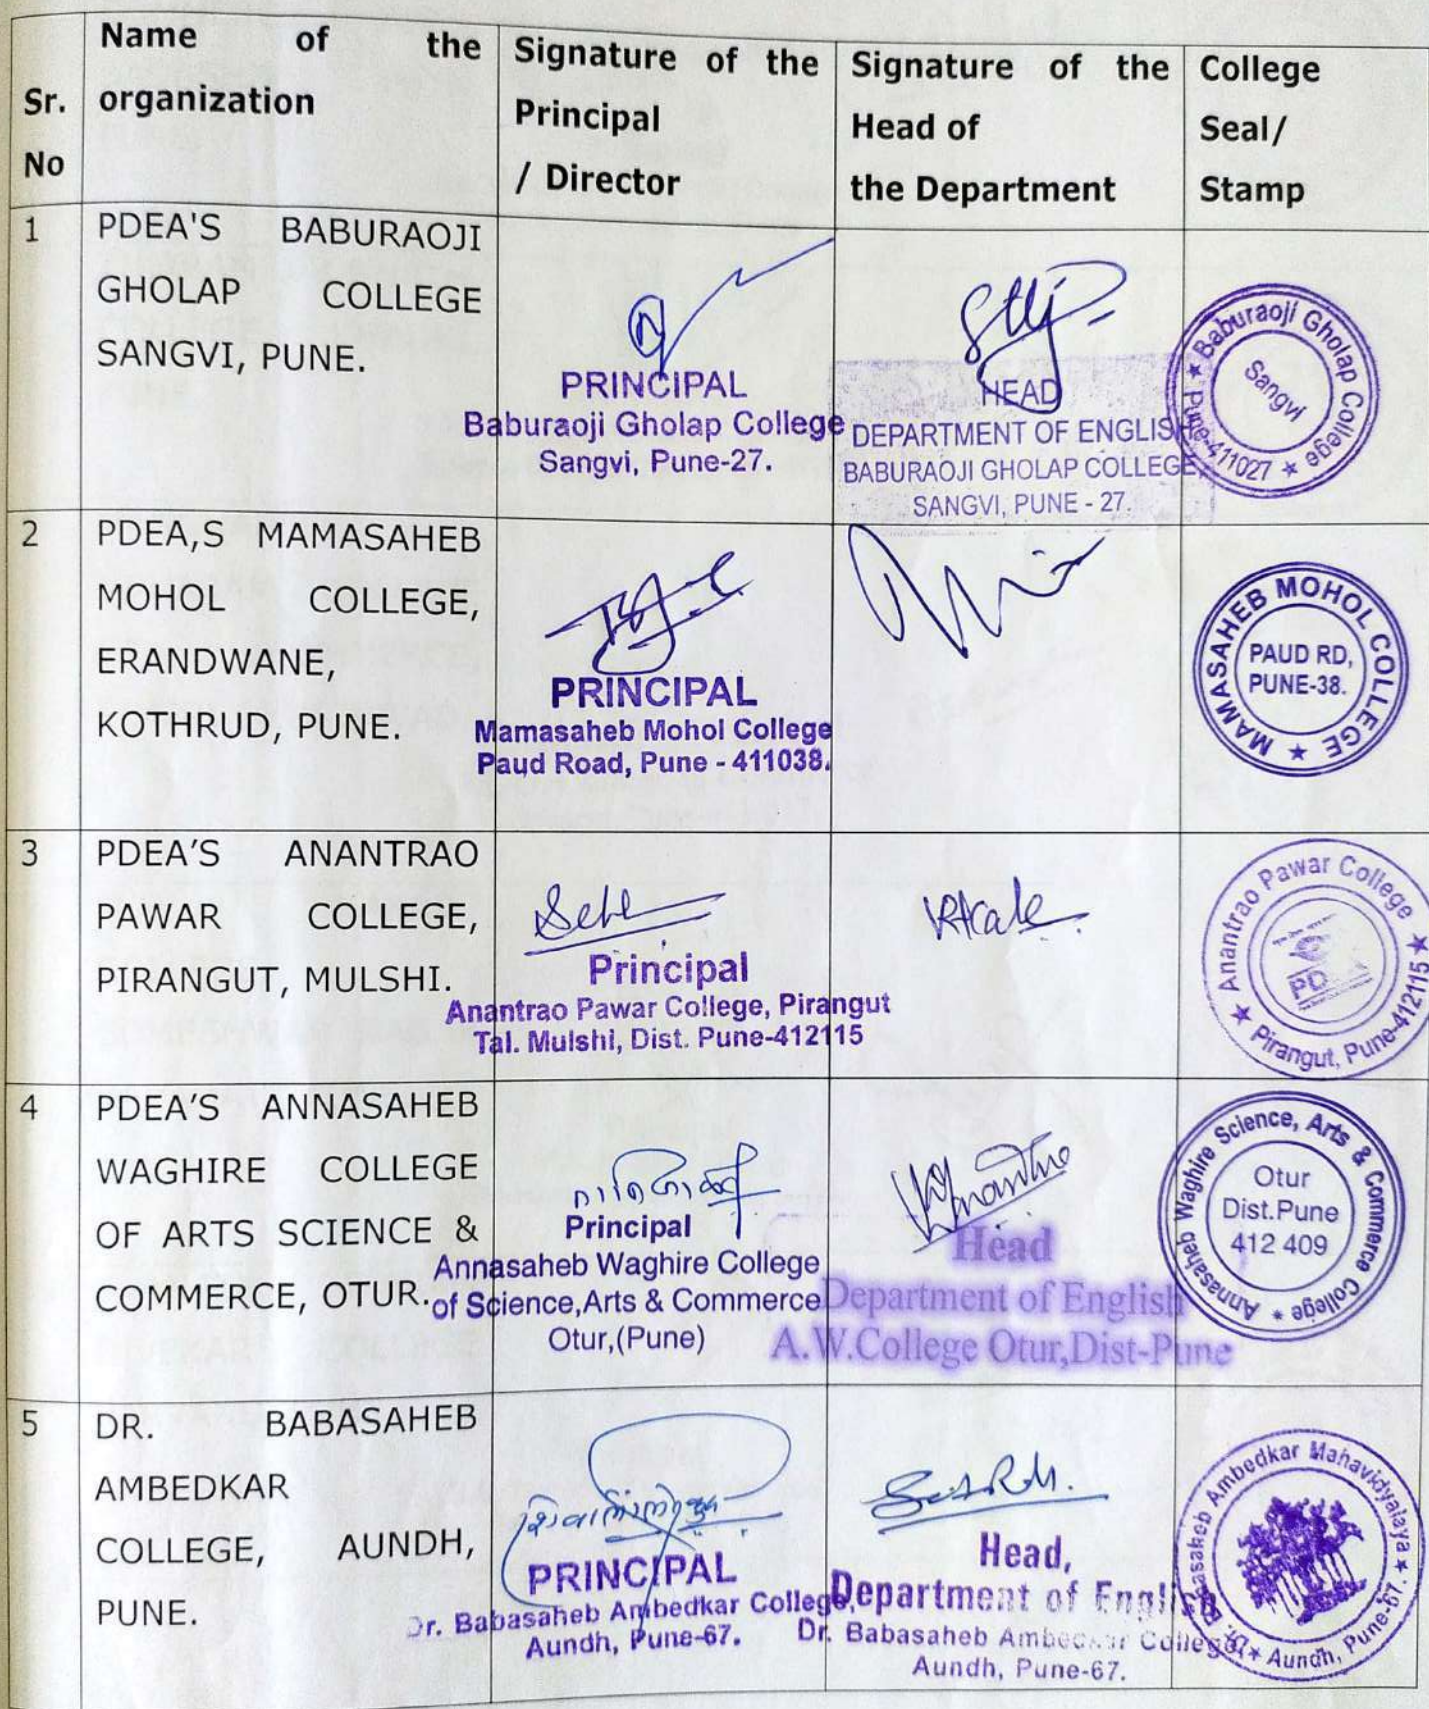 Sr.
No
Name of the
organization
Signature of the
Principal
/ Director
Signature of the
Head of
the Department
College
Seal/
Stamp
1
PDEA'S BABURAOJI
GHOLAP COLLEGE
SANGVI, PUNE.
PRINCIPAL
Baburaoji Gholap College
Sangvi, Pune-27.
HEAD
DEPARTMENT OF ENGLISH
BABURAOJI GHOLAP COLLEGE
SANGVI, PUNE - 27.
★ Baburaoji Gholap College ★ Pune-411027
Sangvi
2
PDEA,S MAMASAHEB
MOHOL COLLEGE,
ERANDWANE,
KOTHRUD, PUNE.
PRINCIPAL
Mamasaheb Mohol College
Paud Road, Pune - 411038.
MAMASAHEB MOHOL COLLEGE ★
PAUD RD,
PUNE-38.
3
PDEA'S ANANTRAO
PAWAR COLLEGE,
PIRANGUT, MULSHI.
Principal
Anantrao Pawar College, Pirangut
Tal. Mulshi, Dist. Pune-412115
★ Anantrao Pawar College ★
Pirangut, Pune-412115
4
PDEA'S ANNASAHEB
WAGHIRE COLLEGE
OF ARTS SCIENCE &
COMMERCE, OTUR.
Principal
Annasaheb Waghire College
of Science,Arts & Commerce
Otur,(Pune)
Head
Department of English
A.W.College Otur,Dist-Pune
Annasaheb Waghire Science, Arts & Commerce College *
Otur
Dist.Pune
412 409
5
DR. BABASAHEB
AMBEDKAR
COLLEGE, AUNDH,
PUNE.
PRINCIPAL
Dr. Babasaheb Ambedkar College,
Aundh, Pune-67.
Head,
Department of English
Dr. Babasaheb Ambedkar College
Aundh, Pune-67.
Dr. Babasaheb Ambedkar Mahavidyalaya ★
★ Aundh, Pune-67.